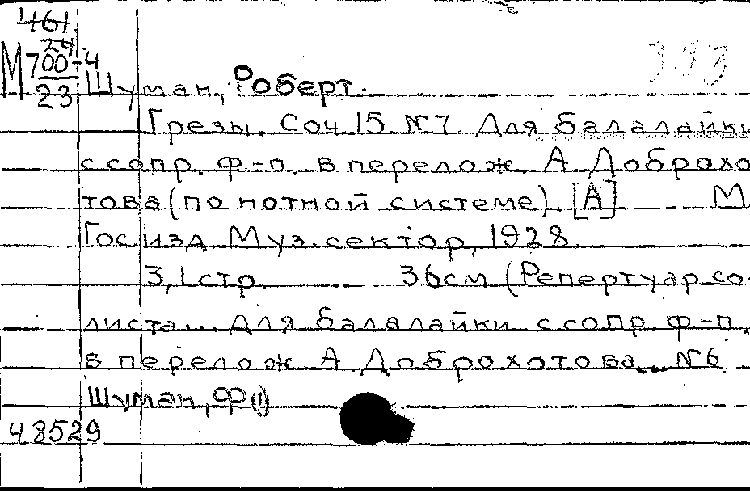 461
24
М 700-4
23
Шуман, Роберт.
Грезы. Соч. 15 №7. Для балалайки
с сопр. ф-п. в перелож. А. Доброхо-
това (по нотной системе). [А] М.
Госизд. Муз. сектор, 1928.
3, 1 стр. 36 см (Репертуар со-
листа... Для балалайки с сопр. ф-п.
в перелож. А. Доброхотова. №6
Шуман, Ф(1)
48529